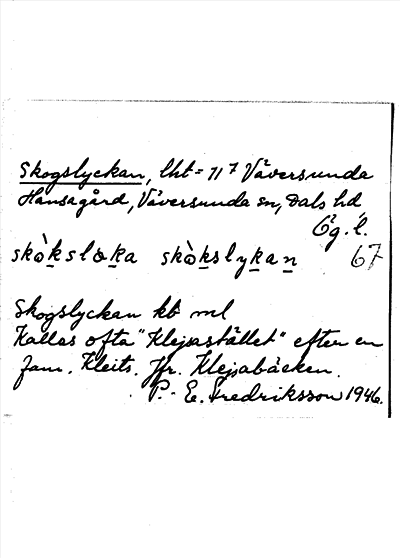 Skogslyckan, lht = 11⁷ Väversunda
Hansagård, Väversunda sn, Dals hd
Ög. l.
skòkslœka skòkslykan 67
Skogslyckan kb ml
Kallas ofta "Klejsastället" efter en
fam. Kleits. Jfr. Klejsabäcken.
P. E. Fredriksson 1946.